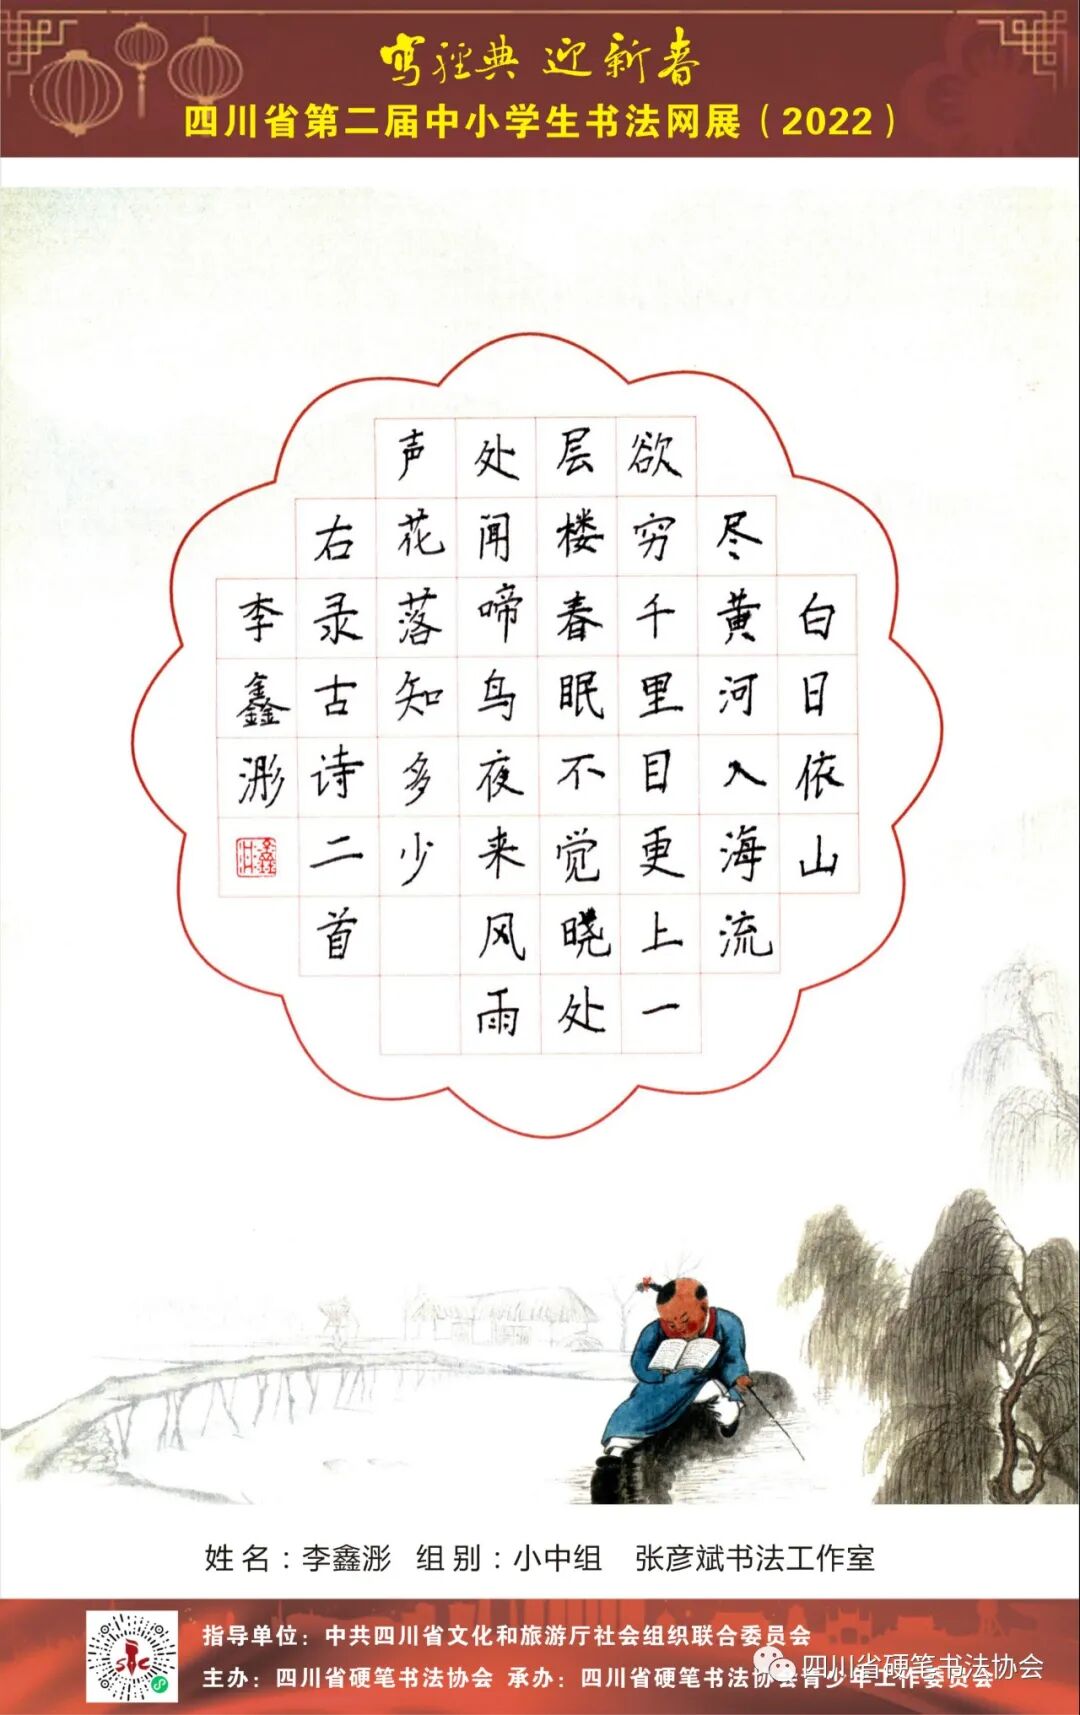 写经典 迎新春
四川省第二届中小学生书法网展（2022）
白日依山
尽黄河入海流
欲穷千里目更上一
层楼春眠不觉晓处
处闻啼鸟夜来风雨
声花落知多少
右录古诗二首
李鑫浵
姓名：李鑫浵 组别：小中组 张彦斌书法工作室
指导单位：中共四川省文化和旅游厅社会组织联合委员会
主办：四川省硬笔书法协会 承办：四川省硬笔书法协会青少年工作委员会
四川省硬笔书法协会